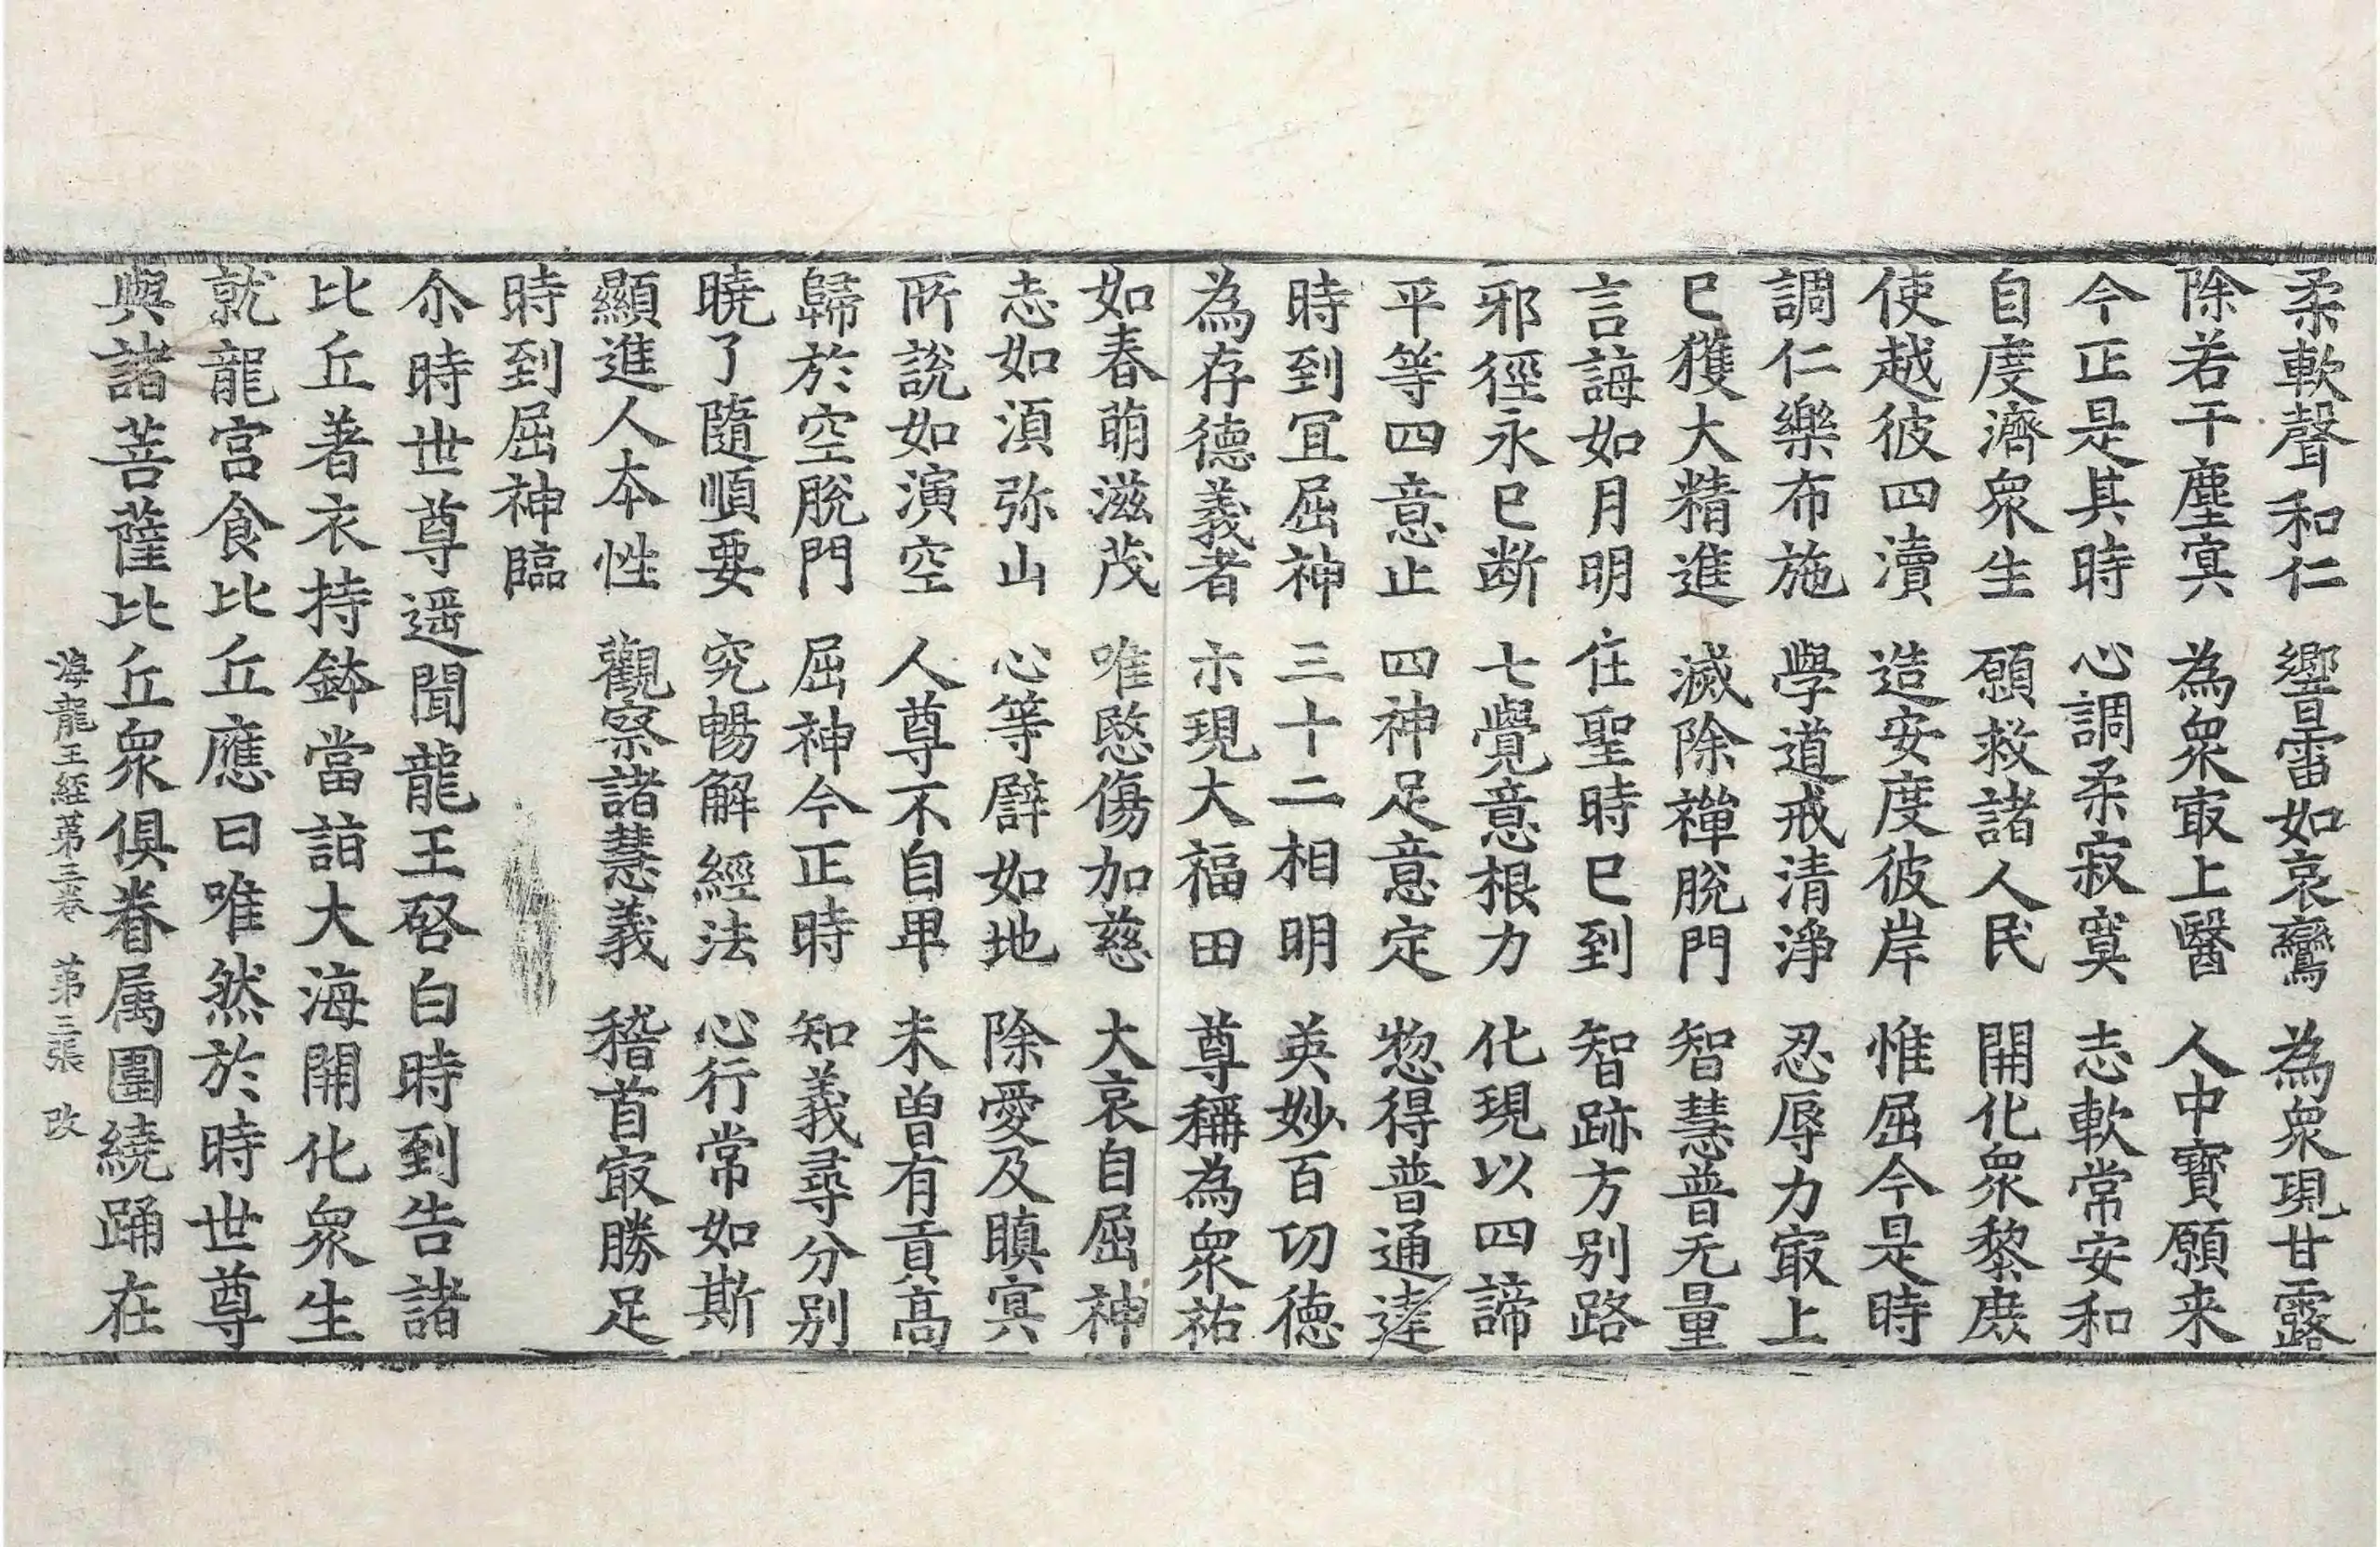 柔軟聲和仁　響雷如哀鸞　為衆現甘露
除若干塵冥　為衆㝡上醫　人中寶願来
今正是其時　心調柔寂寞　志軟常安和
自度濟衆生　願救諸人民　開化衆黎庶
使越彼四瀆　造安度彼岸　惟屈今是時
調仁樂布施　學道戒清淨　忍辱力㝡上
已獲大精進　滅除禪脫門　智慧普无量
言誨如月明　住聖時已到　智跡方別路
邪徑永已断　七覺意根力　化現以四諦
平等四意止　四神足意定　惣得普通達
時到宜屈神　三十二相明　英妙百㓛德
為存德義者　示現大福田　尊稱為衆祐
如春萌滋茂　唯愍傷加慈　大哀自屈神
志如湏弥山　心等譬如地　除愛及瞋冥
所說如演空　人尊不自卑　未曾有貢高
歸於空脫門　屈神今正時　知義尋分别
曉了隨順要　究暢解經法　心行常如斯
顯進人本性　觀察諸慧義　稽首㝡勝足
時到屈神臨
尒時世尊遥聞龍王啓白時到告諸
比丘著衣持鉢當詣大海開化衆生
就龍宮食比丘應曰唯然於時世尊
與諸菩薩比丘衆俱眷属圍繞踊在
海龍王經第三卷　第三張　改